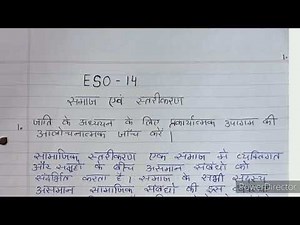 ESO-14
समाज एवं स्तरीकरण
1.
जाति के अध्ययन के लिए प्रकार्यात्मक उपागम की
आलोचनात्मक जाँच करें।
सामाजिक स्तरीकरण एक समाज में व्यक्तियों
और समूहों के बीच असमान संबंधों को
संदर्भित करता है। समाज के सभी सदस्य
असमान सामाजिक संबंधों की इस
PowerDirector